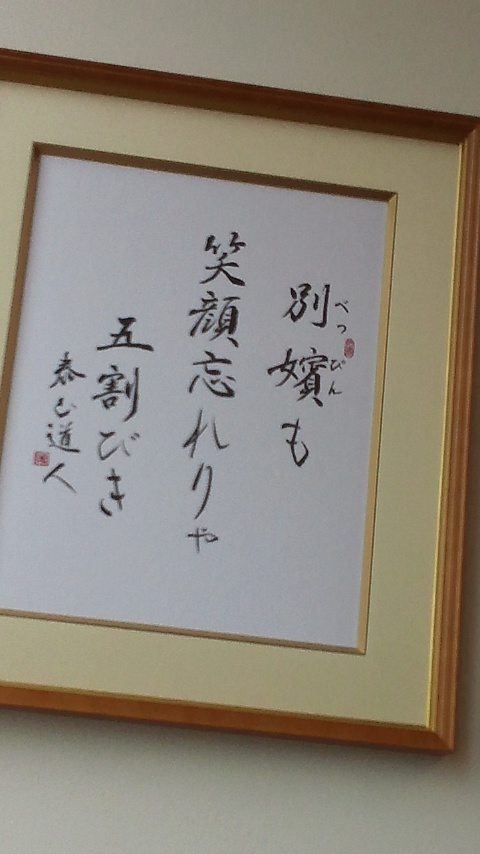 別嬪も
べっぴん
笑顔忘れりゃ
五割びき
道人